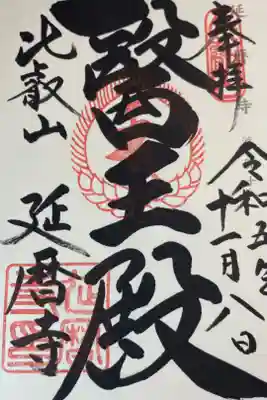 奉拝
令和五年
十一月八日
醫王殿
比叡山
延暦寺